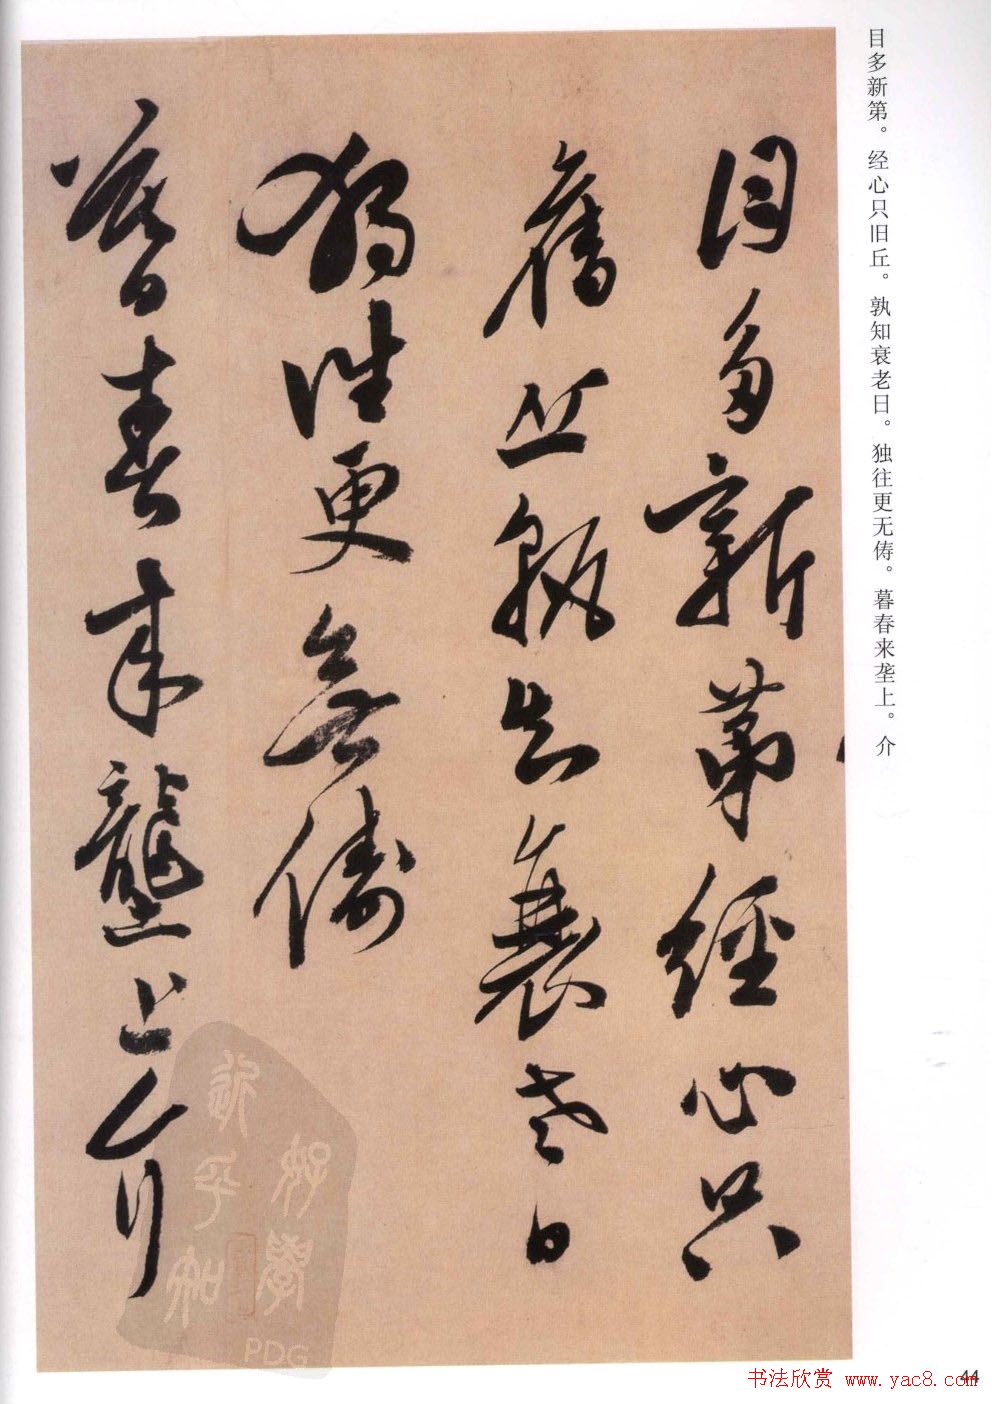 目多新第。经心只旧丘。孰知衰老日。独往更无俦。暮春来垄上。介
目多新第經心只
舊丘孰知衰老日
獨往更無儔
暮春来壟上介
好学
近乎知
PDG
44
书法欣赏 www.yac8.com